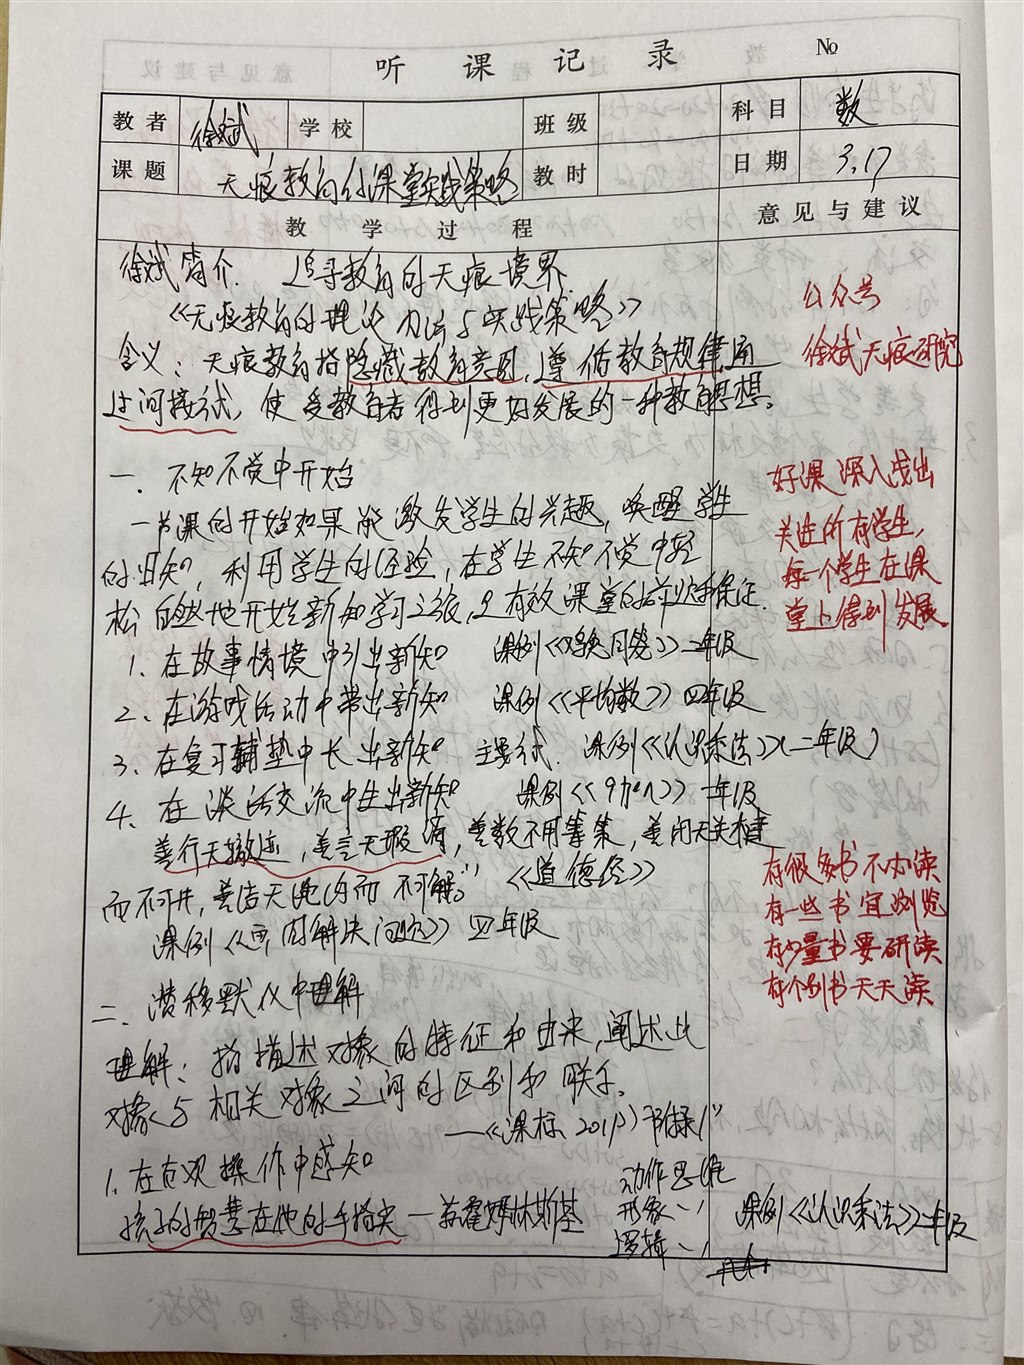 听课记录 No
教者 徐斌 学校 班级 科目 数
课题 无痕教育的课堂实践策略 教时 日期 3.17
教学过程 意见与建议
徐斌简介. 追寻教育的无痕境界.
《无痕教育的理论 办法与实践策略》
含义：无痕教育指隐藏教育意图，遵循教育规律，用
过间接式，使受教育者得到更好发展的一种教育思想。
公众号
徐斌无痕研究
一. 不知不觉中开始
一节课的开始如果能激发学生的兴趣，唤醒学生
的旧知，利用学生的经验，在学生不知不觉中轻
松自然地开始新知学习之旅，是有效课堂的前沿保证.
好课 深入浅出
关注所有学生，
每一个学生在课
堂上得到发展.
1. 在故事情境中引出新知 课例《《 》》二年级
2、在游戏活动中带出新知 课例《《平均数》》四年级
3、在复习铺垫中长出新知 主要式. 课例《《认识乘法》》（二年级）
4、在谈话交流中生出新知 课例《《9加几》》一年级
善行无辙迹，善言无瑕谪，善数不用筹策，善闭无关楗
而不可开，善结无绳约而不可解。” 《《道德经》》
课例《《画图解决问题》》四年级
有很多书不必读
有一些书宜浏览
有少量书要研读
有个别书天天读
二、潜移默化中理解
理解：指描述对象的特征和由来，阐述此
对象与相关对象之间的区别和联系。
—《《课标，2011》》附录1”
1. 在直观操作中感知
孩子的智慧在他的手指尖 —苏霍姆林斯基
动作思维
形象〃
逻辑〃
课例《《认识乘法》》二年级